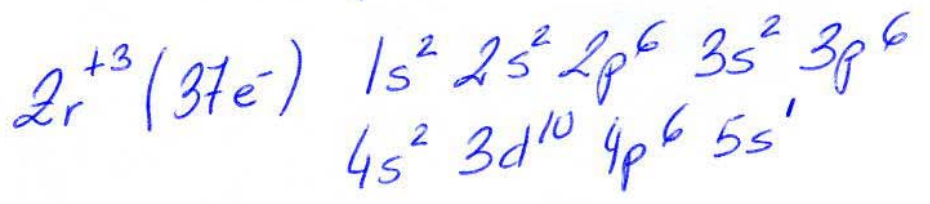 Zr⁺³ (37e⁻) 1s² 2s² 2p⁶ 3s² 3p⁶
4s² 3d¹⁰ 4p⁶ 5s¹